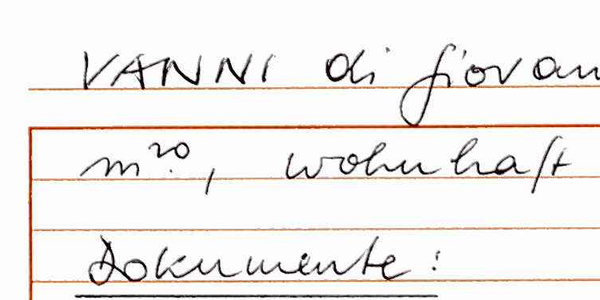 VANNI di Giovan
m²º, wohnhaft
Dokumente: